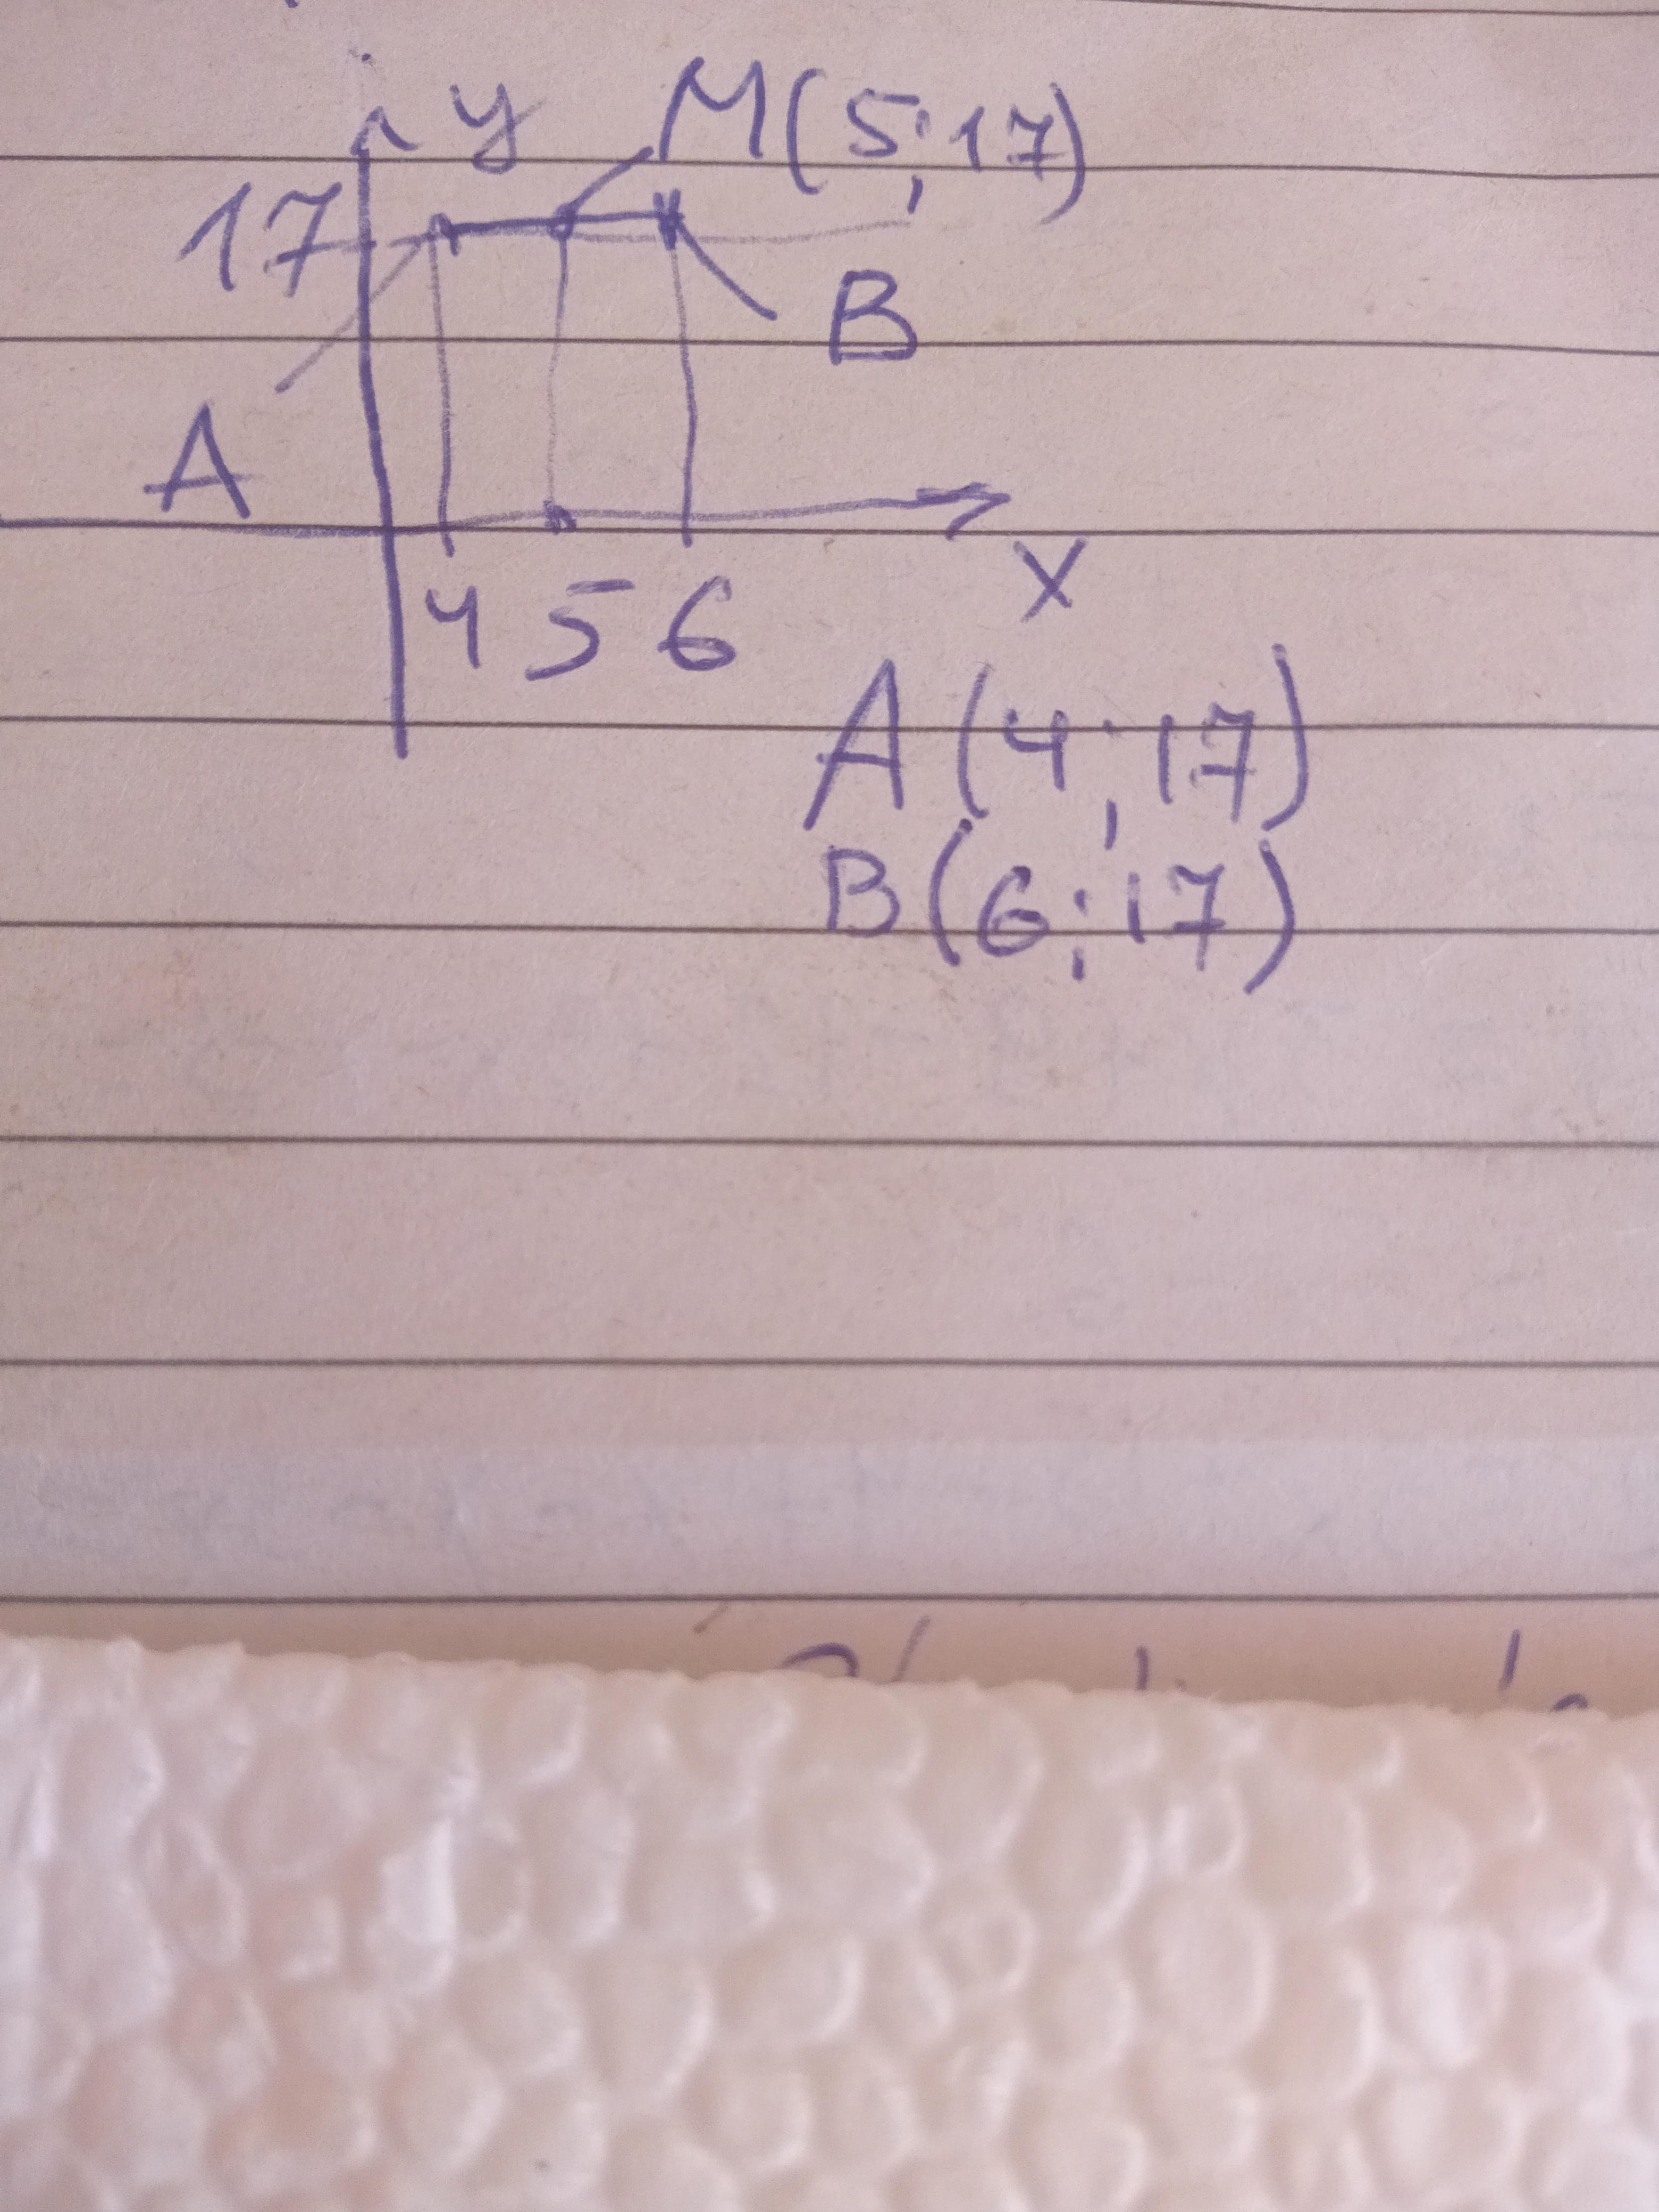 y M(5;17)
17
B
A
x
4 5 6
A(4;17)
B(6;17)